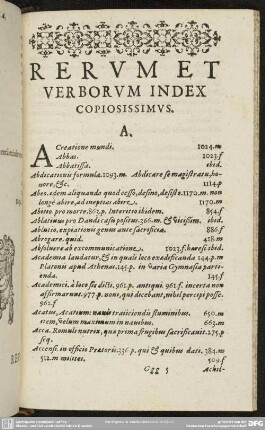 RERVM ET
VERBORVM INDEX
COPIOSISSIMVS.
A.
A Creatione mundi. 1024.m
Abbas. 1023.f
Abbatissa. ibid.
Abdicationis formula. 1093.m. Abdicare se magistratu, ho-
nore, &c. 1114.p
Abes. idem aliquando quod cesso, desino, desiste. 1170.m. non
longè abire, ad ineptias abire. 1170.m
Abitio pro morte. 862.p. Interitio ibidem. 854.f
Ablatiuus pro Dandi casu positus. 266.m. & vicissim. ibid.
Ablutio, expiationis genus ante sacrificia. 886.f
Abrogare. quid. 428.m
Absoluere ab excommunicatione. 1023.f. hæresi ibid.
Academia laudatur, & in quali loco exædificanda 144.p.m
Platonis apud Athenas. 145.p. in varia Gymnasia parti-
enda. 145.f
Academici, à loco sic dicti. 961.p. antiqui. 961.f. incerta non
affirmarunt. 977.p. noui, qui dicebant, nihil percipi posse.
962.f
Acatus, Acatium: nauis traiiciendis fluminibus. 650.m
item, velum maximum in nauibus. 663.m
Acca. Romuli nutrix, quæ prima frugibus sacrificauit. 275.p
seqq.
Accensi. in officio Prætorii. 336.p. qui & quibus dati. 384.m
512.m milites. 509.f
Ggg 5 Achil-